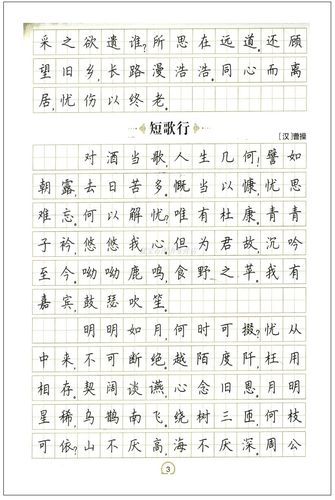 采之欲遗谁?所思在远道。还顾
望旧乡,长路漫浩浩。同心而离
居,忧伤以终老。
短歌行
[汉]曹操
对酒当歌,人生几何!譬如
朝露,去日苦多。慨当以慷,忧思
难忘。何以解忧?唯有杜康。青青
子衿,悠悠我心。但为君故,沉吟
至今。呦呦鹿鸣,食野之苹。我有
嘉宾,鼓瑟吹笙。
明明如月,何时可掇?忧从
中来,不可断绝。越陌度阡,枉用
相存。契阔谈䜩,心念旧恩。月明
星稀,乌鹊南飞。绕树三匝,何枝
可依?山不厌高,海不厌深。周公
3